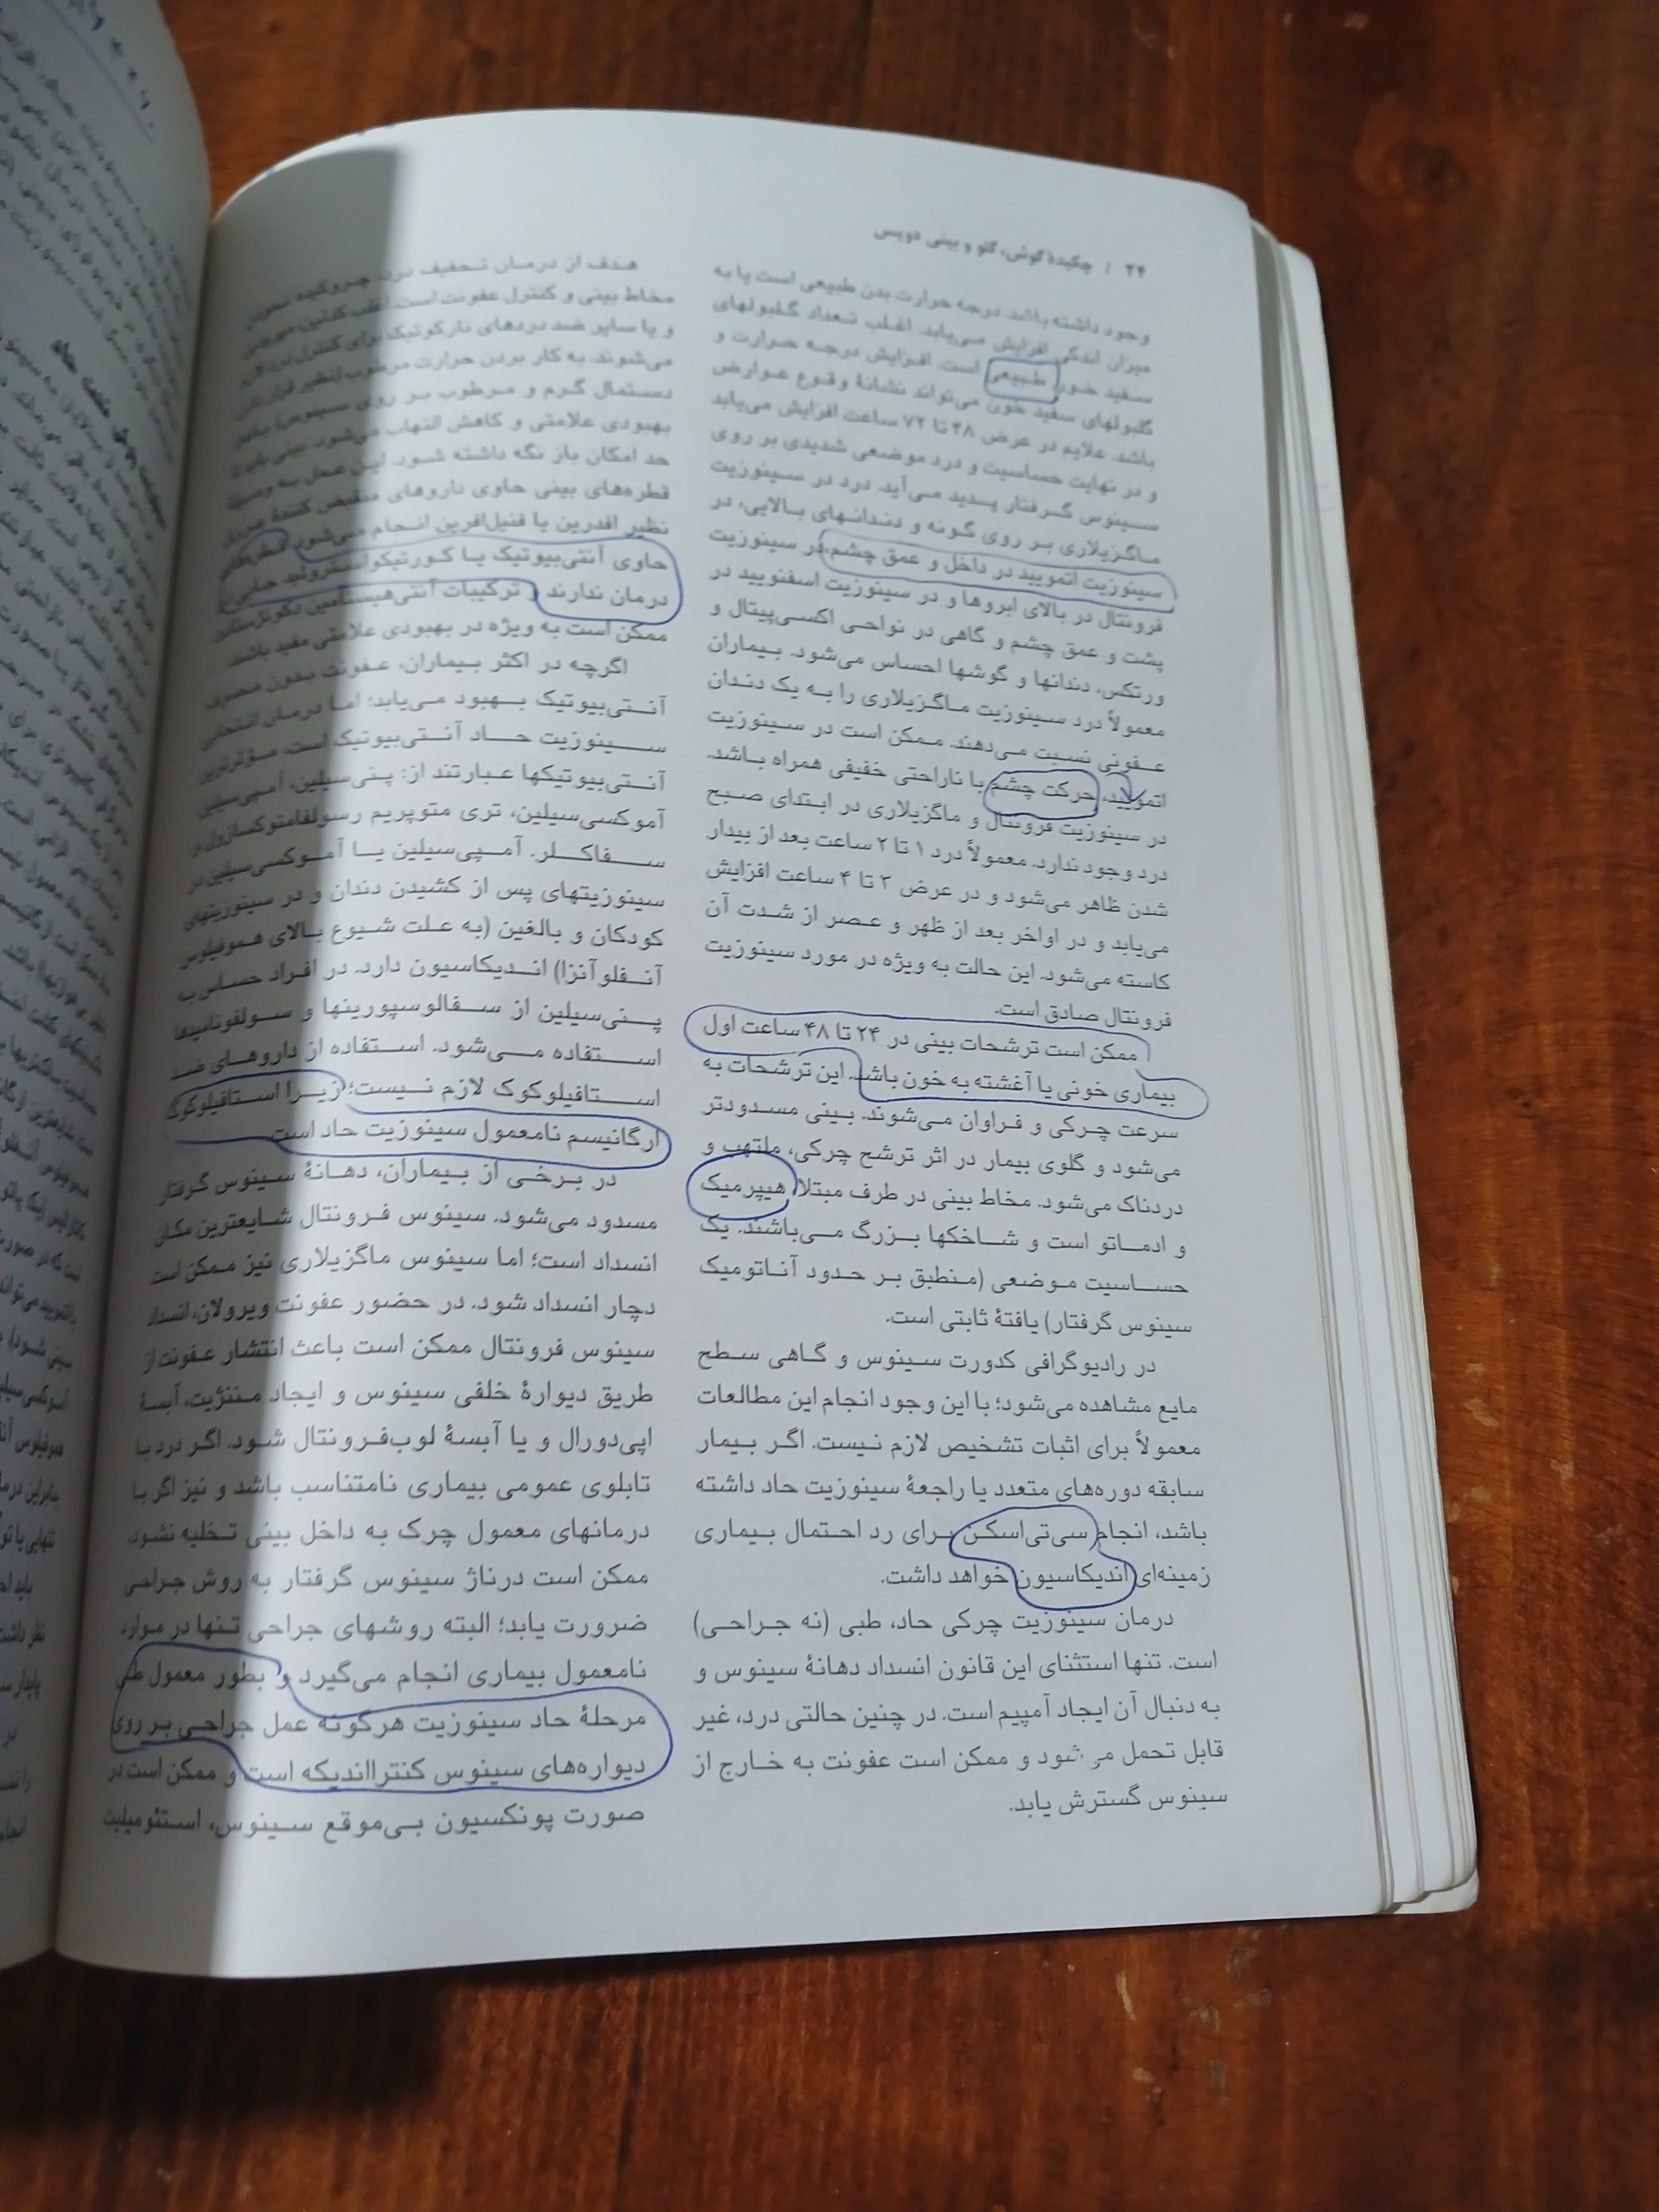 ۲۴ / چکیدهٔ گوش، گلو و بینی دویس
وجود داشته باشد. درجه حرارت بدن طبیعی است یا به
میزان اندکی افزایش می‌یابد. اغلب تعداد گلبولهای
سفید خون طبیعی است. افزایش درجه حرارت و
گلبولهای سفید خون می‌تواند نشانهٔ وقوع عوارض
باشد. علایم در عرض ۴۸ تا ۷۲ ساعت افزایش می‌یابد
و در نهایت حساسیت و درد موضعی شدیدی بر روی
سینوس گرفتار پدید می‌آید. درد در سینوزیت
ماگزیلاری بر روی گونه و دندانهای بالایی، در
سینوزیت اتمویید در داخل و عمق چشم، در سینوزیت
فرونتال در بالای ابروها و در سینوزیت اسفنویید در
پشت و عمق چشم و گاهی در نواحی اکسی‌پیتال و
ورتکس، دندانها و گوشها احساس می‌شود. بیماران
معمولاً درد سینوزیت ماگزیلاری را به یک دندان
عفونی نسبت می‌دهند. ممکن است در سینوزیت
اتمویید، حرکت چشم با ناراحتی خفیفی همراه باشد.
در سینوزیت فرونتال و ماگزیلاری در ابتدای صبح
درد وجود ندارد. معمولاً درد ۱ تا ۲ ساعت بعد از بیدار
شدن ظاهر می‌شود و در عرض ۳ تا ۴ ساعت افزایش
می‌یابد و در اواخر بعد از ظهر و عصر از شدت آن
کاسته می‌شود. این حالت به ویژه در مورد سینوزیت
فرونتال صادق است.
ممکن است ترشحات بینی در ۲۴ تا ۴۸ ساعت اول
بیماری خونی یا آغشته به خون باشد. این ترشحات به
سرعت چرکی و فراوان می‌شوند. بینی مسدودتر
می‌شود و گلوی بیمار در اثر ترشح چرکی، ملتهب و
دردناک می‌شود. مخاط بینی در طرف مبتلا، هیپرمیک
و ادماتو است و شاخکها بزرگ می‌باشند. یک
حساسیت موضعی (منطبق بر حدود آناتومیک
سینوس گرفتار) یافتهٔ ثابتی است.
در رادیوگرافی کدورت سینوس و گاهی سطح
مایع مشاهده می‌شود؛ با این وجود انجام این مطالعات
معمولاً برای اثبات تشخیص لازم نیست. اگر بیمار
سابقه دوره‌های متعدد یا راجعهٔ سینوزیت حاد داشته
باشد، انجام سی‌تی‌اسکن برای رد احتمال بیماری
زمینه‌ای اندیکاسیون خواهد داشت.
درمان سینوزیت چرکی حاد، طبی (نه جراحی)
است. تنها استثنای این قانون انسداد دهانهٔ سینوس و
به دنبال آن ایجاد آمپیم است. در چنین حالتی درد، غیر
قابل تحمل می‌شود و ممکن است عفونت به خارج از
سینوس گسترش یابد.
هدف از درمان تخفیف درد، چروکیده نمودن
مخاط بینی و کنترل عفونت است. اغلب کدئین، مپریدین
و یا سایر ضد دردهای نارکوتیک برای کنترل درد لازم
می‌شوند. به کار بردن حرارت مرطوب (نظیر قرار دادن
دستمال گرم و مرطوب بر روی سینوس) باعث
بهبودی علامتی و کاهش التهاب می‌شود. بینی باید تا
حد امکان باز نگه داشته شود. این عمل به وسیلهٔ
قطره‌های بینی حاوی داروهای منقبض کنندهٔ عروق
نظیر افدرین یا فنیل‌افرین انجام می‌شود. قطره‌های
حاوی آنتی‌بیوتیک یا کورتیکواستروئید جایی در
درمان ندارند و ترکیبات آنتی‌هیستامین دکونژستان
ممکن است به ویژه در بهبودی علامتی مفید باشند.
اگرچه در اکثر بیماران، عفونت بدون مصرف
آنتی‌بیوتیک بهبود می‌یابد؛ اما درمان انتخابی
سینوزیت حاد آنتی‌بیوتیک است. مؤثرترین
آنتی‌بیوتیکها عبارتند از: پنی‌سیلین، آمپی‌سیلین
آموکسی‌سیلین، تری متوپریم رسولفامتوکسازول و
سفاکلر. آمپی‌سیلین یا آموکسی‌سیلین در
سینوزیتهای پس از کشیدن دندان و در سینوزیتهای
کودکان و بالغین (به علت شیوع بالای هموفیلوس
آنفلوآنزا) اندیکاسیون دارد. در افراد حساس به
پنی‌سیلین از سفالوسپورینها و سولفونامیدها
استفاده می‌شود. استفاده از داروهای ضد
استافیلوکوک لازم نیست؛ زیرا استافیلوکوک
ارگانیسم نامعمول سینوزیت حاد است.
در برخی از بیماران، دهانهٔ سینوس گرفتار
مسدود می‌شود. سینوس فرونتال شایعترین مکان
انسداد است؛ اما سینوس ماگزیلاری نیز ممکن است
دچار انسداد شود. در حضور عفونت ویرولان، انسداد
سینوس فرونتال ممکن است باعث انتشار عفونت از
طریق دیوارهٔ خلفی سینوس و ایجاد مننژیت، آبسهٔ
اپی‌دورال و یا آبسهٔ لوب‌فرونتال شود. اگر درد با
تابلوی عمومی بیماری نامتناسب باشد و نیز اگر با
درمانهای معمول چرک به داخل بینی تخلیه نشود،
ممکن است درناژ سینوس گرفتار به روش جراحی
ضرورت یابد؛ البته روشهای جراحی تنها در موارد
نامعمول بیماری انجام می‌گیرد و بطور معمول طی
مرحلهٔ حاد سینوزیت هرگونه عمل جراحی بر روی
دیواره‌های سینوس کنترااندیکه است و ممکن است در
صورت پونکسیون بی‌موقع سینوس، استئومیلیت